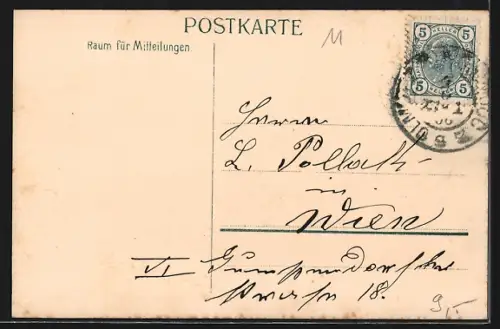 POSTKARTE
11
Raum für Mitteilungen
5 HELLER 5
5 5
Herrn
L. Pollak
in
Wien
VI Gumpendorfer
strasse 18.